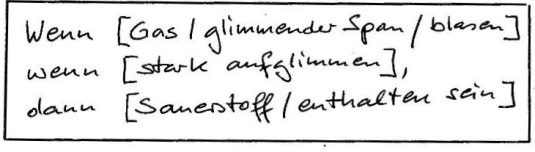 Wenn [Gas / glimmender Span / blasen]
wenn [stark aufglimmen],
dann [Sauerstoff / enthalten sein]